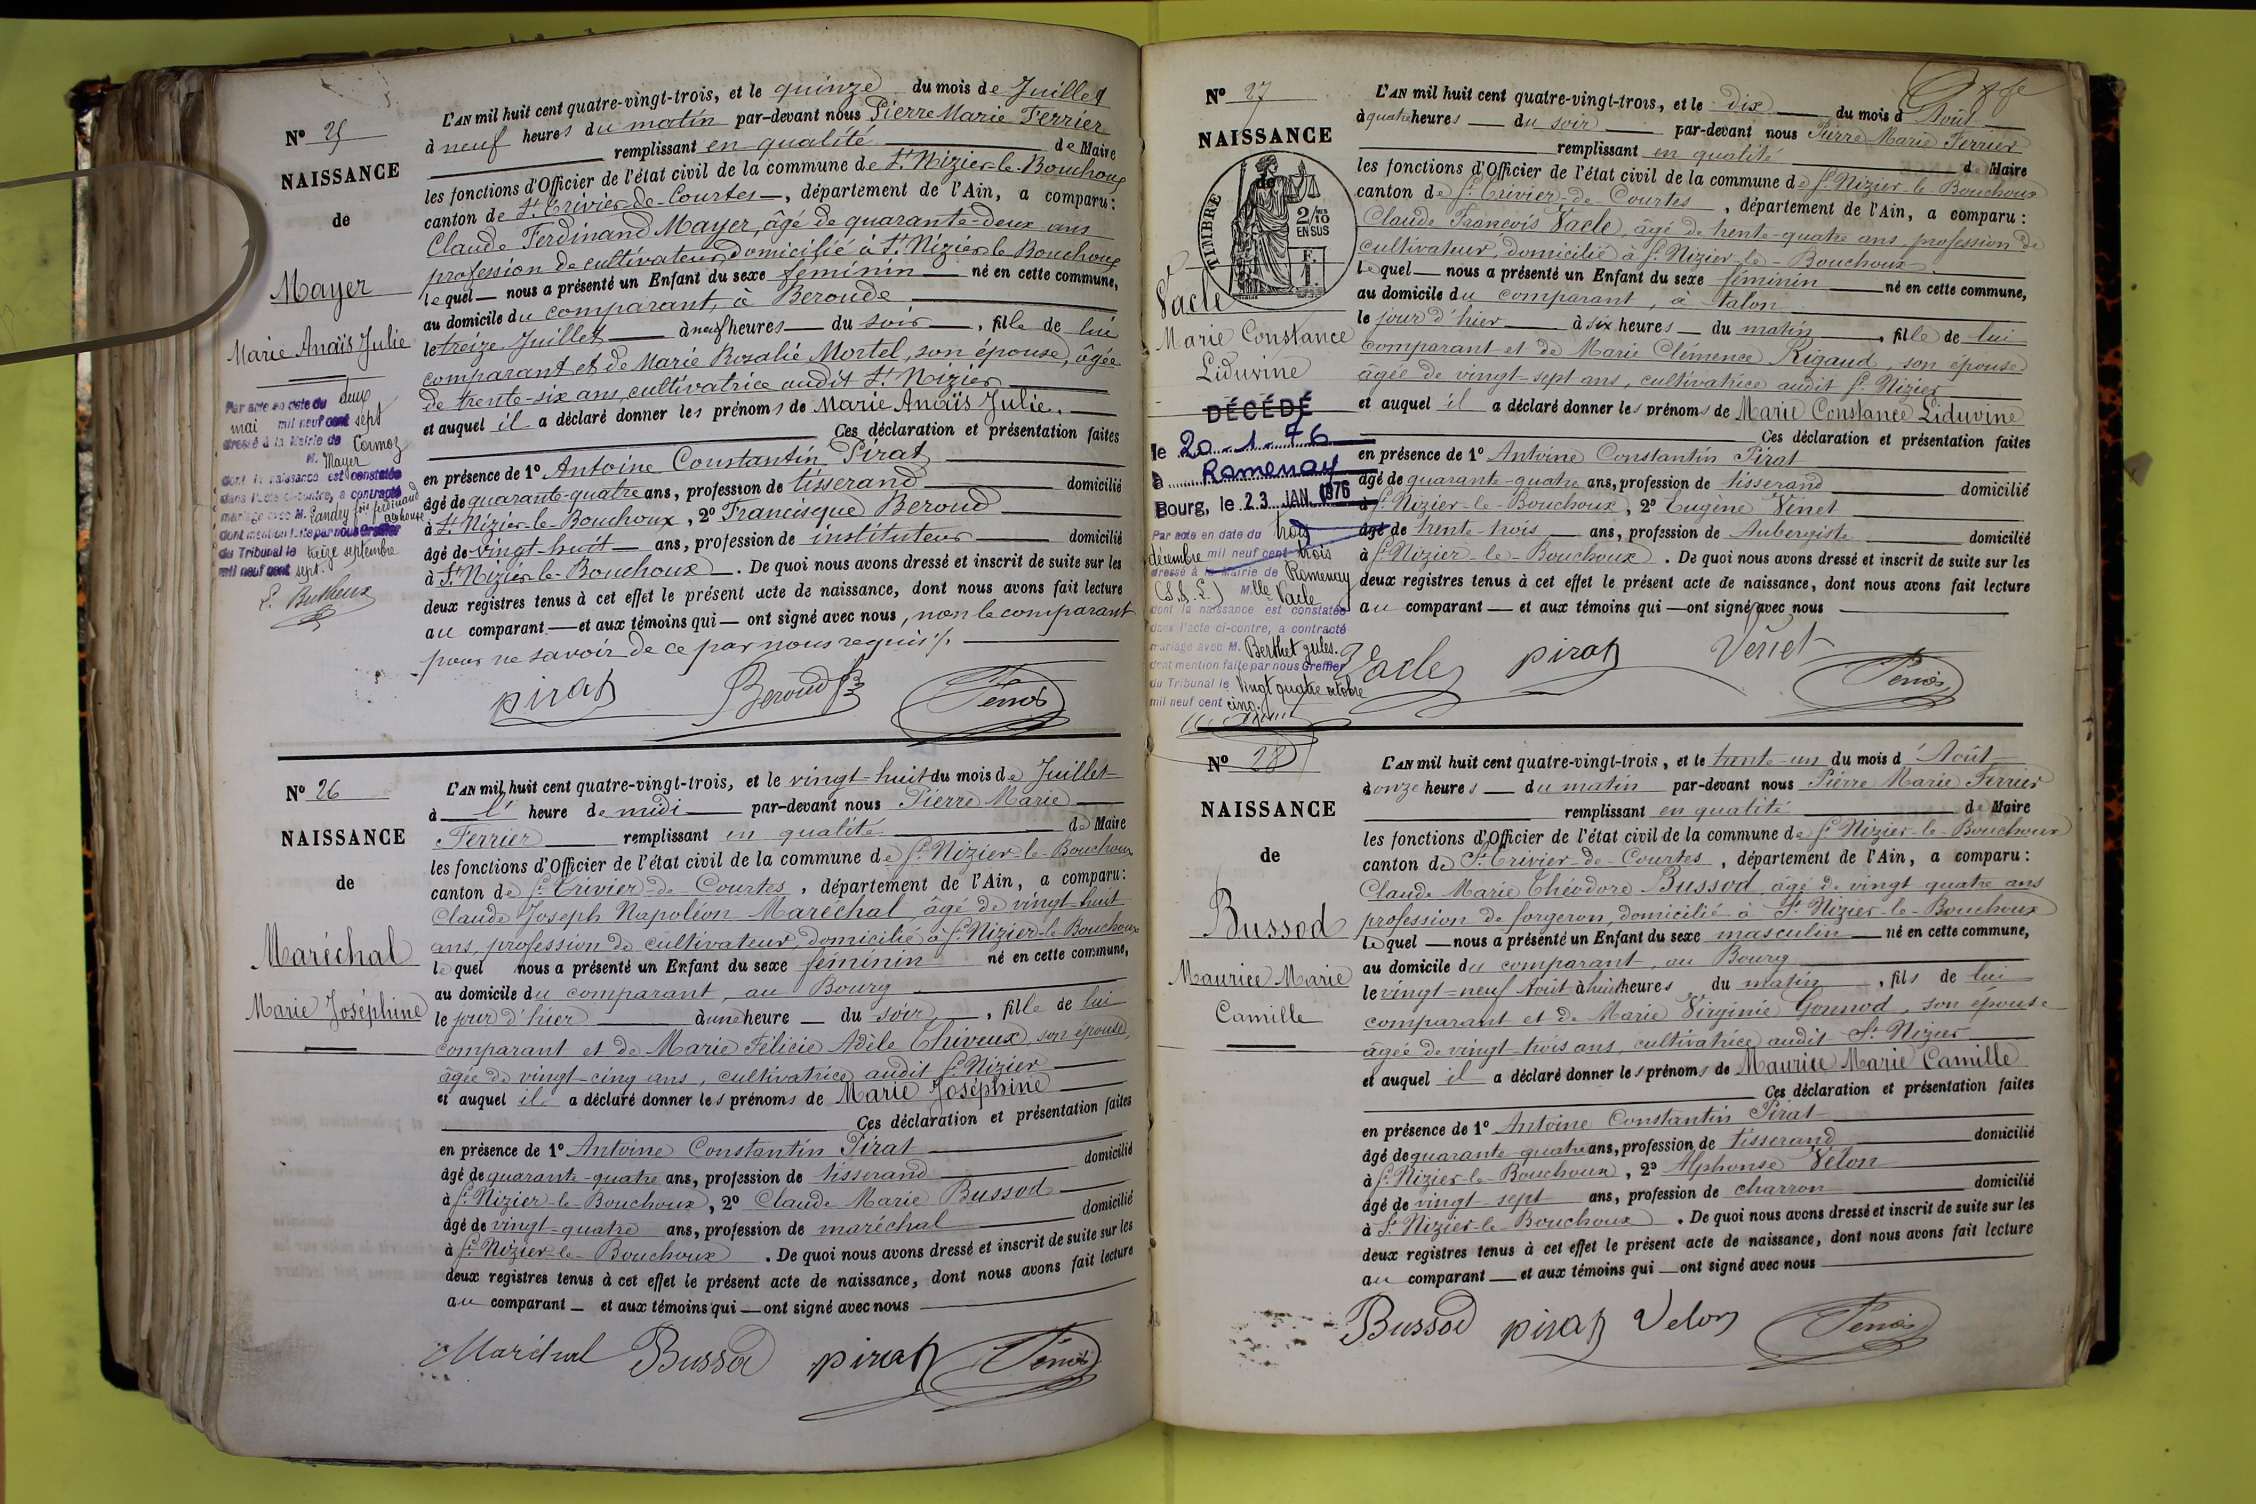 N° 25
NAISSANCE
de
Mayer
Marie Anaïs Julie
Par acte en date du deux
mai mil neuf cent sept
dressé à la Mairie de Cormoz
M. Mayer
dont la naissance est constatée
dans l'acte ci-contre, a contracté
mariage avec M. Gandey
dont mention faite par nous Greffier
du Tribunal le treize septembre
mil neuf cent sept.
L'AN mil huit cent quatre-vingt-trois, et le quinze du mois de Juillet
à neuf heures du matin par-devant nous Pierre Marie Ferrier
remplissant en qualité de Maire
les fonctions d'Officier de l'état civil de la commune de St. Nizier-le-Bouchoux
canton de St. Trivier-de-Courtes, département de l'Ain, a comparu:
Claude Ferdinand Mayer, âgé de quarante-deux ans
profession de cultivateur, domicilié à St. Nizier-le-Bouchoux
lequel nous a présenté un Enfant du sexe féminin né en cette commune,
au domicile du comparant, à Beroude
le treize Juillet à neuf heures du soir, fille de lui
comparant et de Marie Rosalie Mortel, son épouse, âgée
de trente-six ans, cultivatrice audit St. Nizier
et auquel il a déclaré donner les prénoms de Marie Anaïs Julie.
Ces déclaration et présentation faites
en présence de 1° Antoine Constantin Pirat
âgé de quarante-quatre ans, profession de tisserand domicilié
à St. Nizier-le-Bouchoux, 2° Francisque Beroud
âgé de vingt-huit ans, profession de instituteur domicilié
à St. Nizier-le-Bouchoux. De quoi nous avons dressé et inscrit de suite sur les
deux registres tenus à cet effet le présent acte de naissance, dont nous avons fait lecture
au comparant et aux témoins qui ont signé avec nous, non le comparant
pour ne savoir de ce par nous requis ./.
pirat Beroud
N° 26
NAISSANCE
de
Maréchal
Marie Joséphine
L'AN mil huit cent quatre-vingt-trois, et le vingt-huit du mois de Juillet
à l' heure de midi par-devant nous Pierre Marie
Ferrier remplissant en qualité de Maire
les fonctions d'Officier de l'état civil de la commune de St. Nizier-le-Bouchoux
canton de St. Trivier-de-Courtes, département de l'Ain, a comparu:
Claude Joseph Napoléon Maréchal, âgé de vingt-huit
ans, profession de cultivateur, domicilié à St. Nizier-le-Bouchoux
lequel nous a présenté un Enfant du sexe féminin né en cette commune,
au domicile du comparant, au Bourg
le jour d'hier à une heure du soir, fille de lui
comparant et de Marie Félicie Adèle Thiveux, son épouse,
âgée de vingt-cinq ans, cultivatrice audit St. Nizier
et auquel il a déclaré donner les prénoms de Marie Joséphine
Ces déclaration et présentation faites
en présence de 1° Antoine Constantin Pirat
âgé de quarante-quatre ans, profession de tisserand domicilié
à St. Nizier-le-Bouchoux, 2° Claude Marie Bussod
âgé de vingt-quatre ans, profession de maréchal domicilié
à St. Nizier-le-Bouchoux. De quoi nous avons dressé et inscrit de suite sur les
deux registres tenus à cet effet le présent acte de naissance, dont nous avons fait lecture
au comparant et aux témoins qui ont signé avec nous
Maréchal Bussod pirat
N° 27
NAISSANCE
de
TIMBRE
2/10
EN SUS
Vacle
Marie Constance
Liduvine
DÉCÉDÉ
le 20-1-76
à Romenay
Bourg, le 23 JAN. 1976
Par acte en date du trois
décembre mil neuf cent trois
dressé à la Mairie de Romenay
(S. & L.) Mlle Vacle
dont la naissance est constatée
dans l'acte ci-contre, a contracté
mariage avec M. Berthet Jules.
dont mention faite par nous Greffier
du Tribunal le vingt quatre octobre
mil neuf cent cinq.
L'AN mil huit cent quatre-vingt-trois, et le dix du mois d'Août
à quatre heures du soir par-devant nous Pierre Marie Ferrier
remplissant en qualité de Maire
les fonctions d'Officier de l'état civil de la commune de St. Nizier-le-Bouchoux
canton de St. Trivier-de-Courtes, département de l'Ain, a comparu:
Claude François Vacle, âgé de trente-quatre ans, profession de
cultivateur, domicilié à St. Nizier-le-Bouchoux
lequel nous a présenté un Enfant du sexe féminin né en cette commune,
au domicile du comparant, à talon
le jour d'hier à six heures du matin, fille de lui
comparant et de Marie Clémence Rigaud, son épouse
âgée de vingt-sept ans, cultivatrice audit St. Nizier
et auquel il a déclaré donner les prénoms de Marie Constance Liduvine
Ces déclaration et présentation faites
en présence de 1° Antoine Constantin Pirat
âgé de quarante-quatre ans, profession de tisserand domicilié
à St. Nizier-le-Bouchoux, 2° Eugène Venet
âgé de trente-trois ans, profession de Aubergiste domicilié
à St. Nizier-le-Bouchoux. De quoi nous avons dressé et inscrit de suite sur les
deux registres tenus à cet effet le présent acte de naissance, dont nous avons fait lecture
au comparant et aux témoins qui ont signé avec nous
Vacle pirat Venet
N° 28
NAISSANCE
de
Bussod
Maurice Marie
Camille
L'AN mil huit cent quatre-vingt-trois, et le trente-un du mois d'Août
à onze heures du matin par-devant nous Pierre Marie Ferrier
remplissant en qualité de Maire
les fonctions d'Officier de l'état civil de la commune de St. Nizier-le-Bouchoux
canton de St. Trivier-de-Courtes, département de l'Ain, a comparu:
Claude Marie Théodore Bussod, âgé de vingt quatre ans
profession de forgeron, domicilié à St. Nizier-le-Bouchoux
lequel nous a présenté un Enfant du sexe masculin né en cette commune,
au domicile du comparant, au Bourg
le vingt-neuf Août à huit heures du matin, fils de lui
comparant et de Marie Virginie Gonnod, son épouse
âgée de vingt-trois ans, cultivatrice audit St. Nizier
et auquel il a déclaré donner les prénoms de Maurice Marie Camille
Ces déclaration et présentation faites
en présence de 1° Antoine Constantin Pirat
âgé de quarante-quatre ans, profession de tisserand domicilié
à St. Nizier-le-Bouchoux, 2° Alphonse Velon
âgé de vingt-sept ans, profession de charron domicilié
à St. Nizier-le-Bouchoux. De quoi nous avons dressé et inscrit de suite sur les
deux registres tenus à cet effet le présent acte de naissance, dont nous avons fait lecture
au comparant et aux témoins qui ont signé avec nous
Bussod pirat Velon